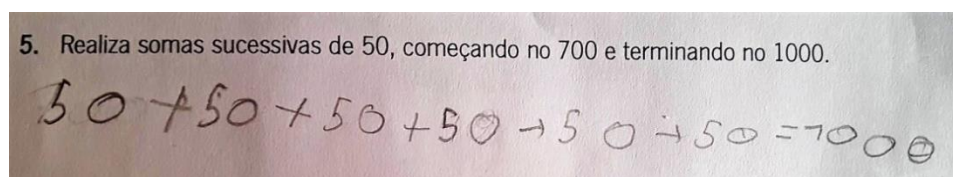 5. Realiza somas sucessivas de 50, começando no 700 e terminando no 1000.
50+50+50+50+50+50=1000